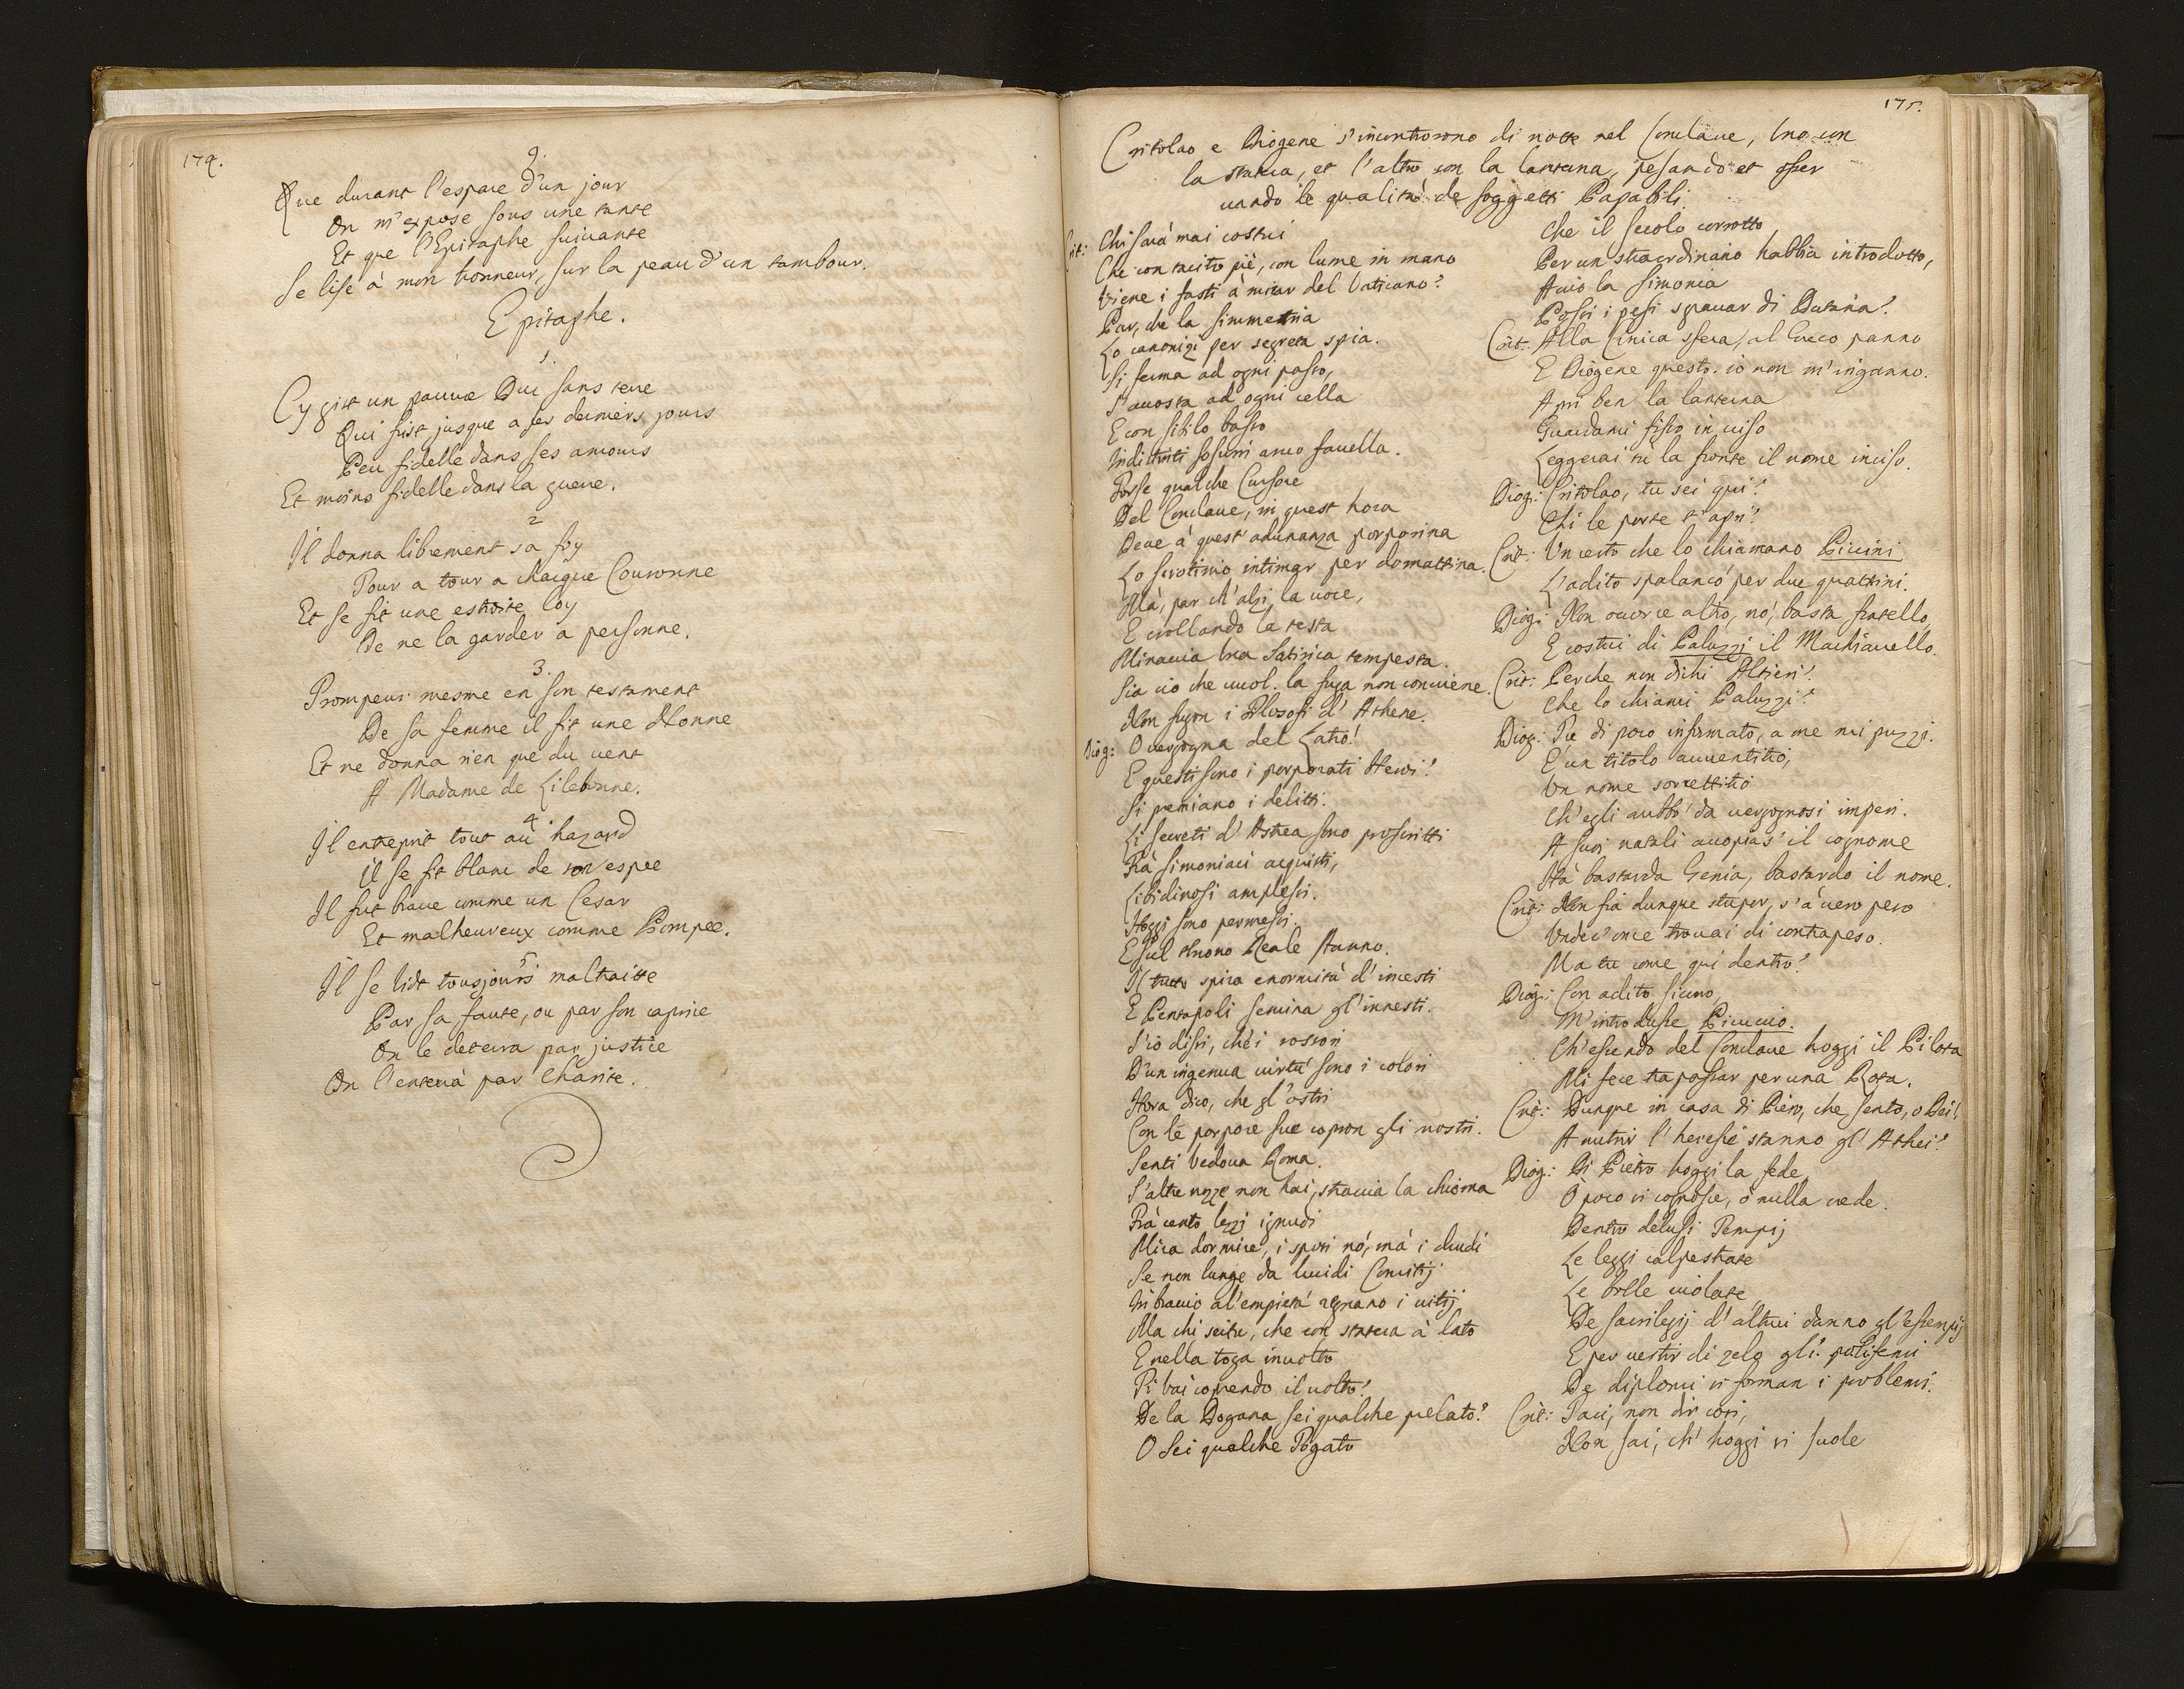 174.
9.
Que durant l'espace d'un jour
On m'expose sous une tante
Et que l'Epitaphe suivante
Se lise à mon honneur, sur la peau d'un tambour.
Epitaphe.
1.
Cy gist un pauvre Duc sans terre
Qui fust jusque a ses derniers jours
Peu fidelle dans ses amours
Et moins fidelle dans la guerre.
2
Il donna librement sa foy
Tour a tour a chacque Couronne
Et se fit une estroite loy
De ne la garder a personne.
3.
Trompeur mesme en son testament
De sa femme il fit une Nonne
Et ne donna rien que du vent
A Madame de Lilebonne.
4.
Il entreprit tout au hazard
il se fit blanc de son espee
Il fut brave comme un Cesar
Et malheureux comme Pompee.
5
Il se vidt tousjours maltraitte
Par sa faute, ou par son caprice
On le deterra par justice
On l'enterrà par Charite.
175.
Critolao e Diogene s'incontrorono di notte nel Conclaue, Uno con
la statera, et l'altro con la lanterna, pesando et osser
uando le qualità de soggetti Papabili.
Crit: Chi sarà mai costui
Che con tacito piè, con lume in mano
Viene i fasti à mirar del Vaticano?
Par, che la simmetria
Lo canonizi per segreta spia.
Si ferma ad ogni passo,
S'accosta ad ogni cella
E con sibilo basso
Indistinti sosurri anco fauella.
Forse qualche Cursore
Del Conclaue, in quest hora
Deue à quest'adunanza porporina
Lo scrotinio intimar per domattina.
Mà, par ch'alzi la uoce,
E crollando la testa
Minaccia Una Satirica tempesta.
Sia ciò che uuol. la fuga non conuiene.
Non fugon i Filosofi d'Athene.
Diog: O uergogna del Latio!
E questi sono i porporati Heroi?
Si premiano i delitti.
Li decreti d'Astrea sono proscritti
Frà simoniaci acquisti,
Libidinosi amplessi.
Hoggi sono permessi.
E sul throno Reale stanno.
Il tutto spira enormità d'incesti
E Pentapoli semina gl'innesti.
S'io dissi, ché i rossori
D'un ingenua uirtù sono i colori
Hora dico, che gl'ostri
Con le porpore sue copron gli mostri.
Senti Vedoua Roma.
S'altre nozze non hai, straccia la chioma
Frà cento lezzi ignudi
Mira dormire, i sposi nò, mà i drudi
Se non lunge da lucidi Comitij
In braccio al'empietà regnano i uitij
Ma chi sei tu, che con statera à lato
E nella toga inuolto
Ti vai coprendo il uolto?
De la Dogana sei qualche pelato?
O sei qualche Togato
Che il secolo corrotto
Per un straordinario habbia introdotto,
Acciò la simonia
Possi i pesi sgrauar di Dataria?
Crit: Alla Cinica sfera, al Greco panno
E Diogene questo. io non m'inganno.
Apri ben la lanterna
Guardami fisso in uiso
Leggerai sù la fronte il nome inciso.
Diog: Critolao, tu sei qui?
Chi le porte t'aprì?
Crit: Un certo che lo chiamano Piccini
L'adito spalancò per due quattrini.
Diog: Non occorre altro, nò, basta fratello,
E costui di Paluzzi il Machiauello.
Crit: Perche non dichi Altieri?
Che lo chiami Paluzzi?
Diog: Tu di poco informato, a me mi puzzi.
E un titolo auuentitio,
Un nome sorrettitio
Ch'egli auttò da uergognosi imperi.
A suoi natali accopiaš il cognome
Hà bastarda Genia, bastardo il nome.
Crit: Non fia dunque stupor, s'à uero peso
Undeci once trouai di contrapeso.
Ma tu come qui dentro?
Diog: Con adito sicuro,
M'introdusse Picuccio.
Ch'essendo del Conclaue hoggi il Pilota
Mi fece trapassar per una Rota.
Crit: Dunque in casa di Piero, che sento, o Dei!
A nutrir l'heresie stanno gl'Athei?
Diog: Di Pietro hoggi la fede
O poco si conosce, ò nulla crede.
Dentro delusi Tempij
Le leggi calpestrate
Le bolle uiolate
De sacrilegij d'altrui danno gl'essempij
E per uestir di zelo gli. polifemi
De diplomi si forman i problemi.
Crit: Taci, non dir cosi,
Non sai, ch'hoggi si suole